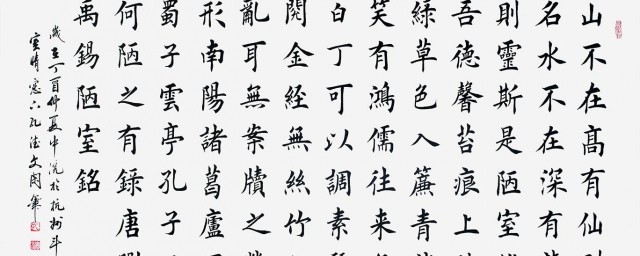 山不在高有仙
名水不在深有
則靈斯是陋室
吾德馨苔痕上
綠草色入簾青
笑有鴻儒往來
白丁可以調素
閱金經無絲竹
亂耳無案牘之
形南陽諸葛廬
蜀子雲亭孔子
何陋之有錄唐
禹錫陋室銘
歲在丁酉仲夏中浣於杭州斗
室晴窗六孔法文